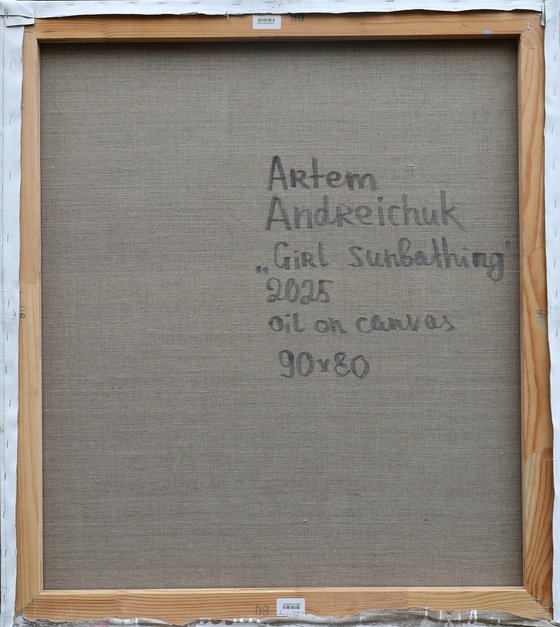 Artem
Andreichuk
„Girl sunbathing"
2025
oil on canvas
90x80